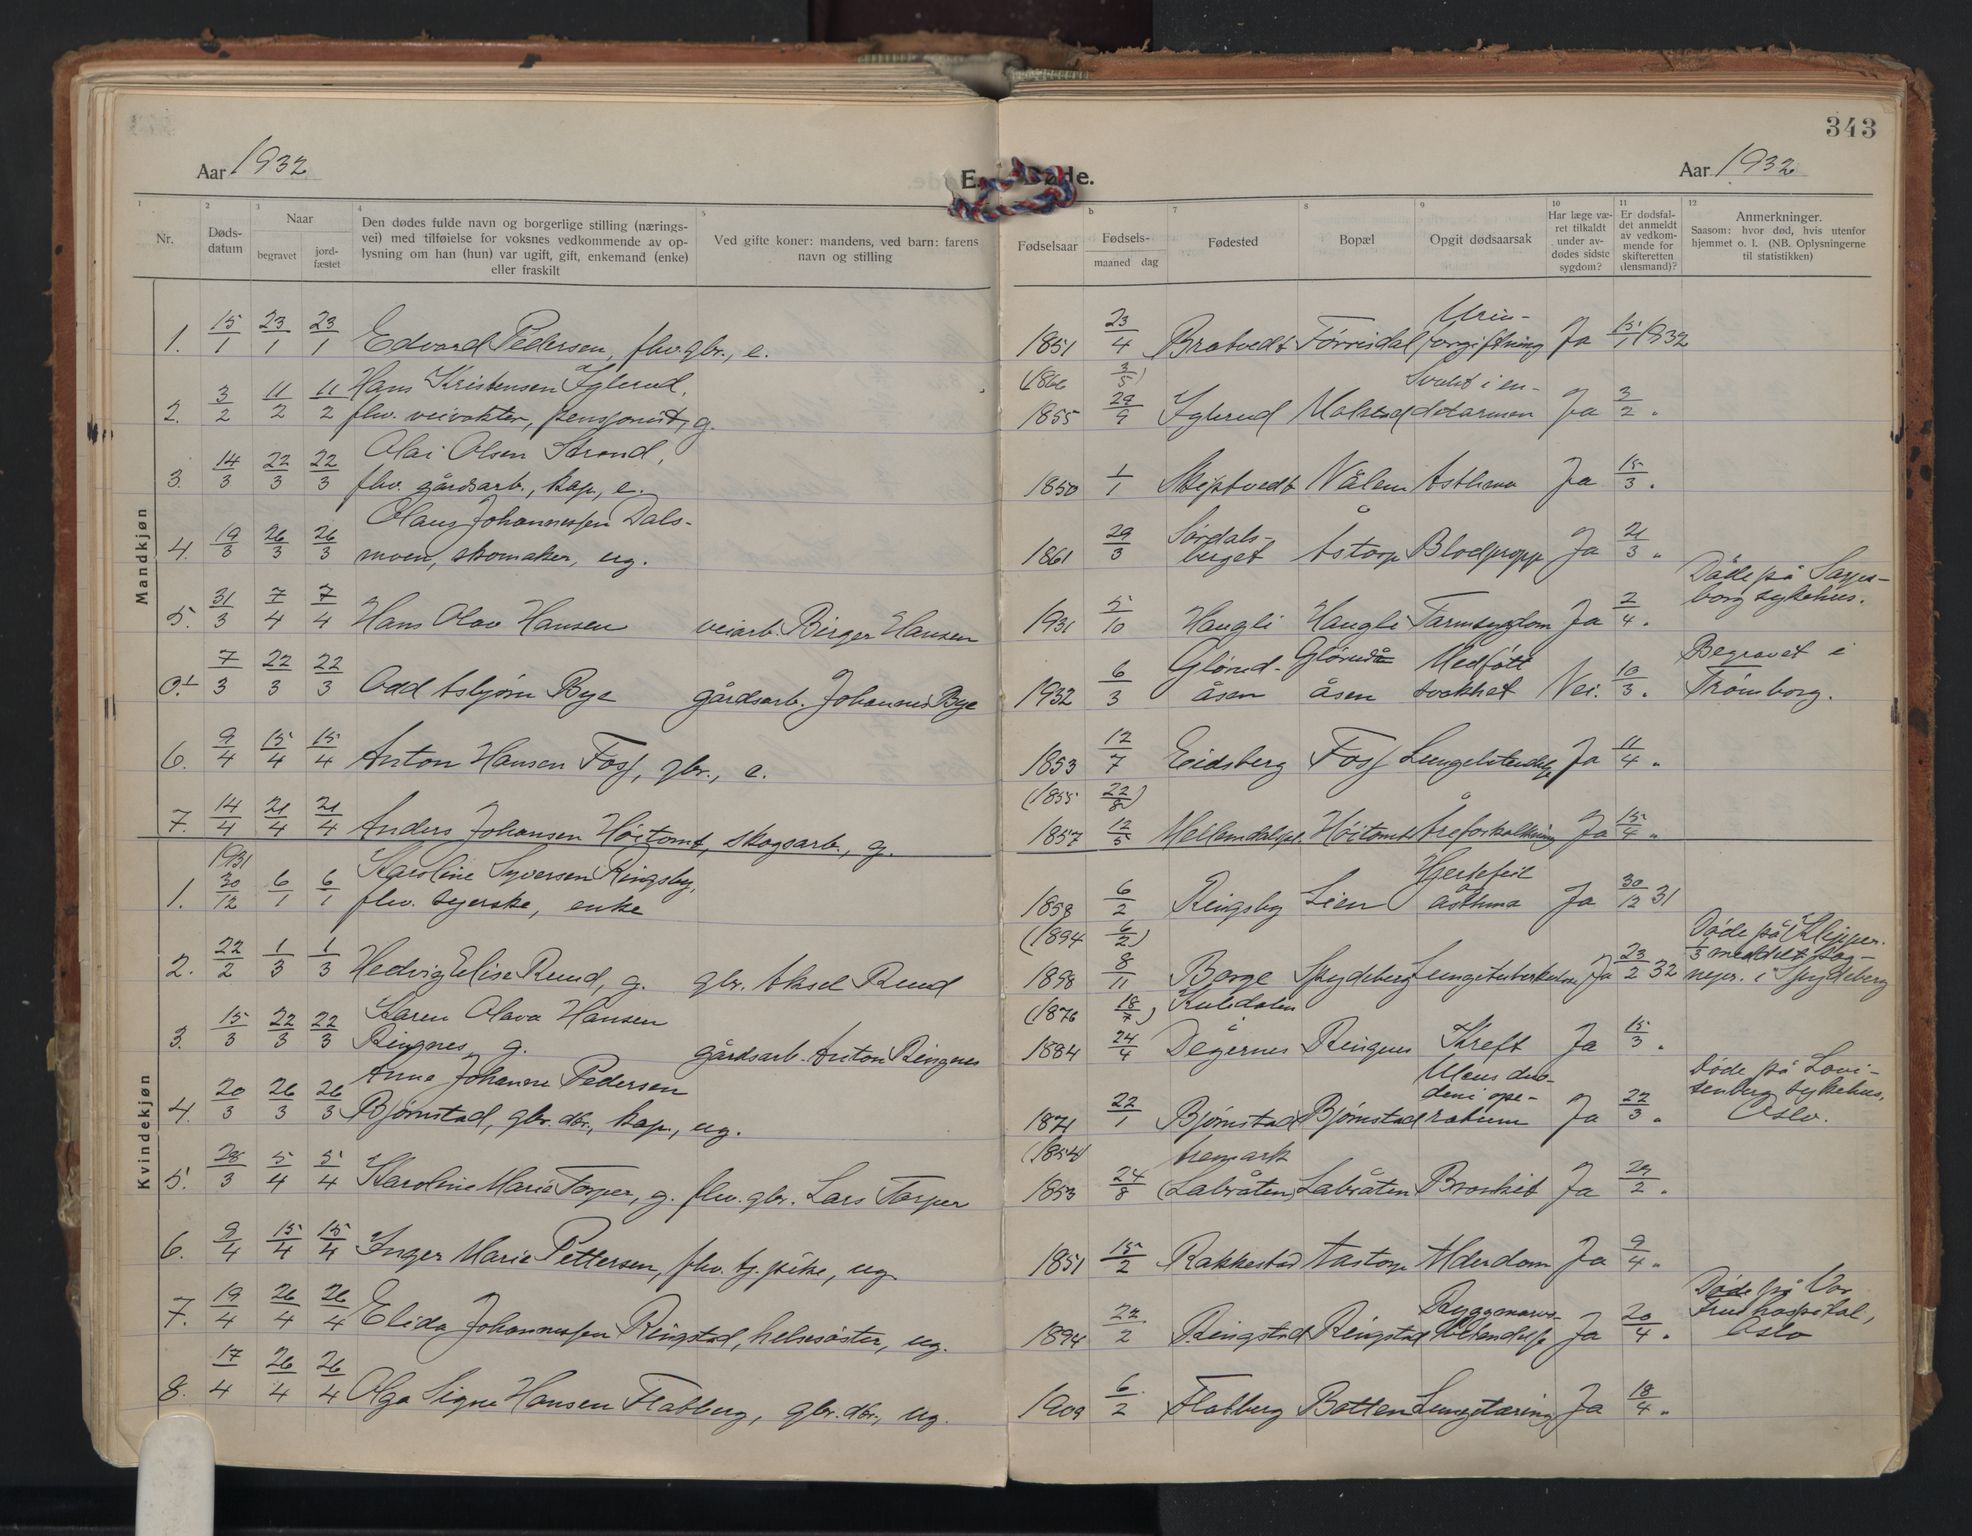 343
Aar 1932
E. Døde.
Aar 1932
1 2 3 4 5 6 7 8 9 10 11 12
Nr. Døds-datum Naar begravet jord-fæstet Den dødes fulde navn og borgerlige stilling (nærings-vei) med tilføielse for voksnes vedkommende av op-lysning om han (hun) var ugift, gift, enkemand (enke) eller fraskilt Ved gifte koner: mandens, ved barn: farens navn og stilling Fødselsaar Fødsels-maaned dag Fødested Bopæl Opgit dødsaarsak Har læge væ-ret tilkaldt under av-dødes sidste sygdom? Er dødsfal-det anmeldt av vedkom-mende for skifteretten (lensmand)? Anmerkninger. Saasom: hvor død, hvis utenfor hjemmet o. l. (NB. Oplysningerne til statistikken)
Mandkjøn
1. 15/1 23/1 23/1 Edvard Pedersen, fhv. gbr., e. 1851 23/4 Bratvedt Tørrisdal Urin-forgiftning Ja 15/1 1932
2. 3/2 11/2 11/2 Hans Kristensen Yglerud, fhv. veivokter, pensjonist, g. (1866 3/5) 1855 29/9 Yglerud Svulst i en-detarmen Ja 3/2 "
3. 14/3 22/3 22/3 Olai Olsen Strand, fhv. gårdsarb., kap., e. 1850 1/1 Skiptvedt Nålem Asthma Ja 15/3 "
4. 19/3 26/3 26/3 Olaus Johannessen Dals-moen, skomaker, ug. 1861 29/3 Sørdals-berget Åstorp Blodpropp Ja 21/3 "
5. 31/3 7/4 7/4 Hans Olav Hansen veiarb. Birger Hansen 1931 5/10 Haugli Haugli Tarmsygdom Ja 2/4 " Døde på Sarps-borg sykehus.
0.1 7/3 22/3 22/3 Odd Asbjørn Bye gårdsarb. Johannes Bye 1932 6/3 Glørud-åsen Glørud-åsen Medfött svakhet Nei. 10/3 " Begravet i Trømborg.
6. 9/4 15/4 15/4 Anton Hansen Foss, gbr., e. 1853 12/7 Eidsberg Foss Lungebetendelse Ja 11/4 "
7. 14/4 21/4 21/4 Anders Johansen Höitomt, skogsarb., g. (1855 22/8) 1857 12/5 Höitomt Åreforkalkning Ja 15/4 "
Kvindekjøn
1. 1931 30/12 6/1 6/1 Karoline Syversen Ringsby, fhv. syerske, enke 1858 6/2 Ringsby Lien Hjertefeil asthma Ja 30/12 31
2. 22/2 1/3 1/3 Hedvig Elise Rud, g. gbr. Aksel Rud (1894 6/2) 1898 8/11 Borge Spydeberg Lungetuberkulose Ja 23/2 32 Døde på Klepper. 1/3 meddelt sog-nepr. i Spydeberg
3. 15/3 22/3 22/3 Karen Olava Hansen Ringnes, g. gårdsarb. Anton Ringnes (1876 18/7) 1884 24/4 Kuledalen Degernes Ringnes Kreft Ja 15/3 "
4. 20/3 26/3 26/3 Anna Johanne Pedersen Bjørnstad, gbr. dtr., kap., ug. 1871 22/1 Bjørnstad Bjørnstad Ulcus duo-deni ope-ratum Ja 22/3 " Døde på Lovi-senberg sykehus, Oslo.
5. 28/3 5/4 5/4 Karoline Marie Torper, g. fhv. gbr. Lars Torper (1854) 1853 24/8 Aremark (Labråten) Labråten Bronkit Ja 29/2 "
6. 9/4 15/4 15/4 Inger Marie Pettersen, fhv. tj. pike, ug. 1851 15/2 Rakkestad Aastorp Alderdom Ja 9/4 "
7. 19/4 26/4 26/4 Elida Johannessen Ringstad, helsesøster, ug. 1894 22/2 Ringstad Ringstad Ryggmarvs-betendelse Ja 20/4 " Døde på Vor Frue hospital, Oslo
8. 17/4 26/4 26/4 Olga Signe Hansen Flatberg, gbr. dtr., ug. 1909 6/2 Flatberg Botten Lungetæring Ja 18/4 "